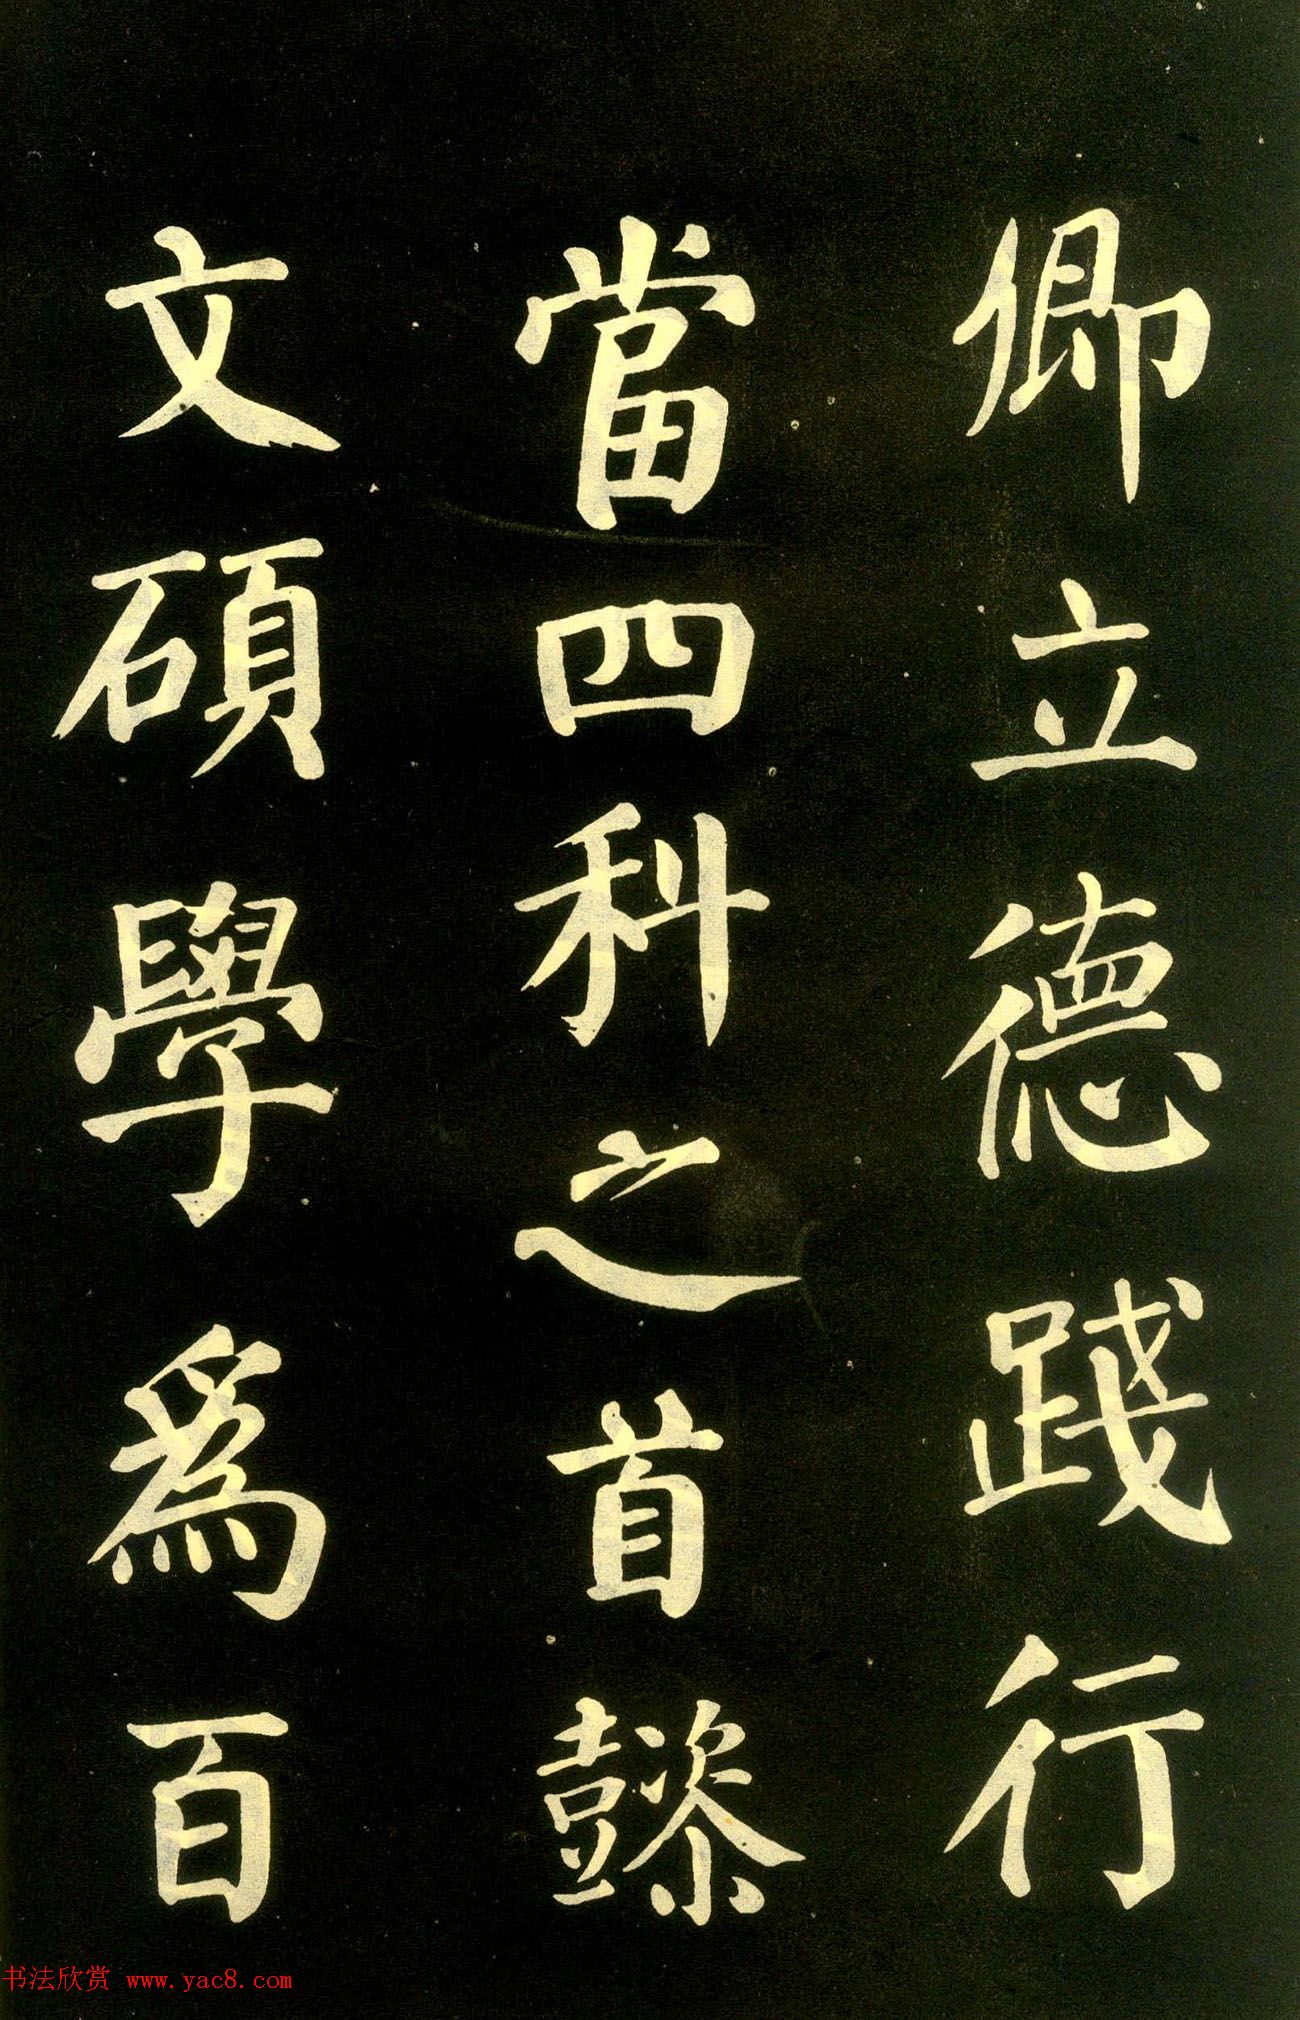 卿立德踐行
當四科之首懿
文碩學爲百
书法欣赏 www.yac8.com